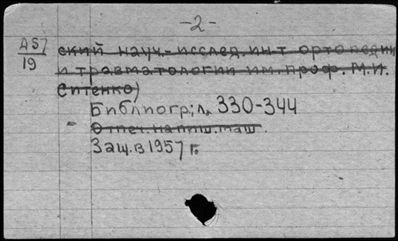 -2-
А57
19
ский науч.-исслед. ин-т ортопедии
и травматологии им. проф. М.И.
Ситенко)
Библиогр.; л. 330-344
Отпеч. на пиш. маш.
Защ. в 1957 г.